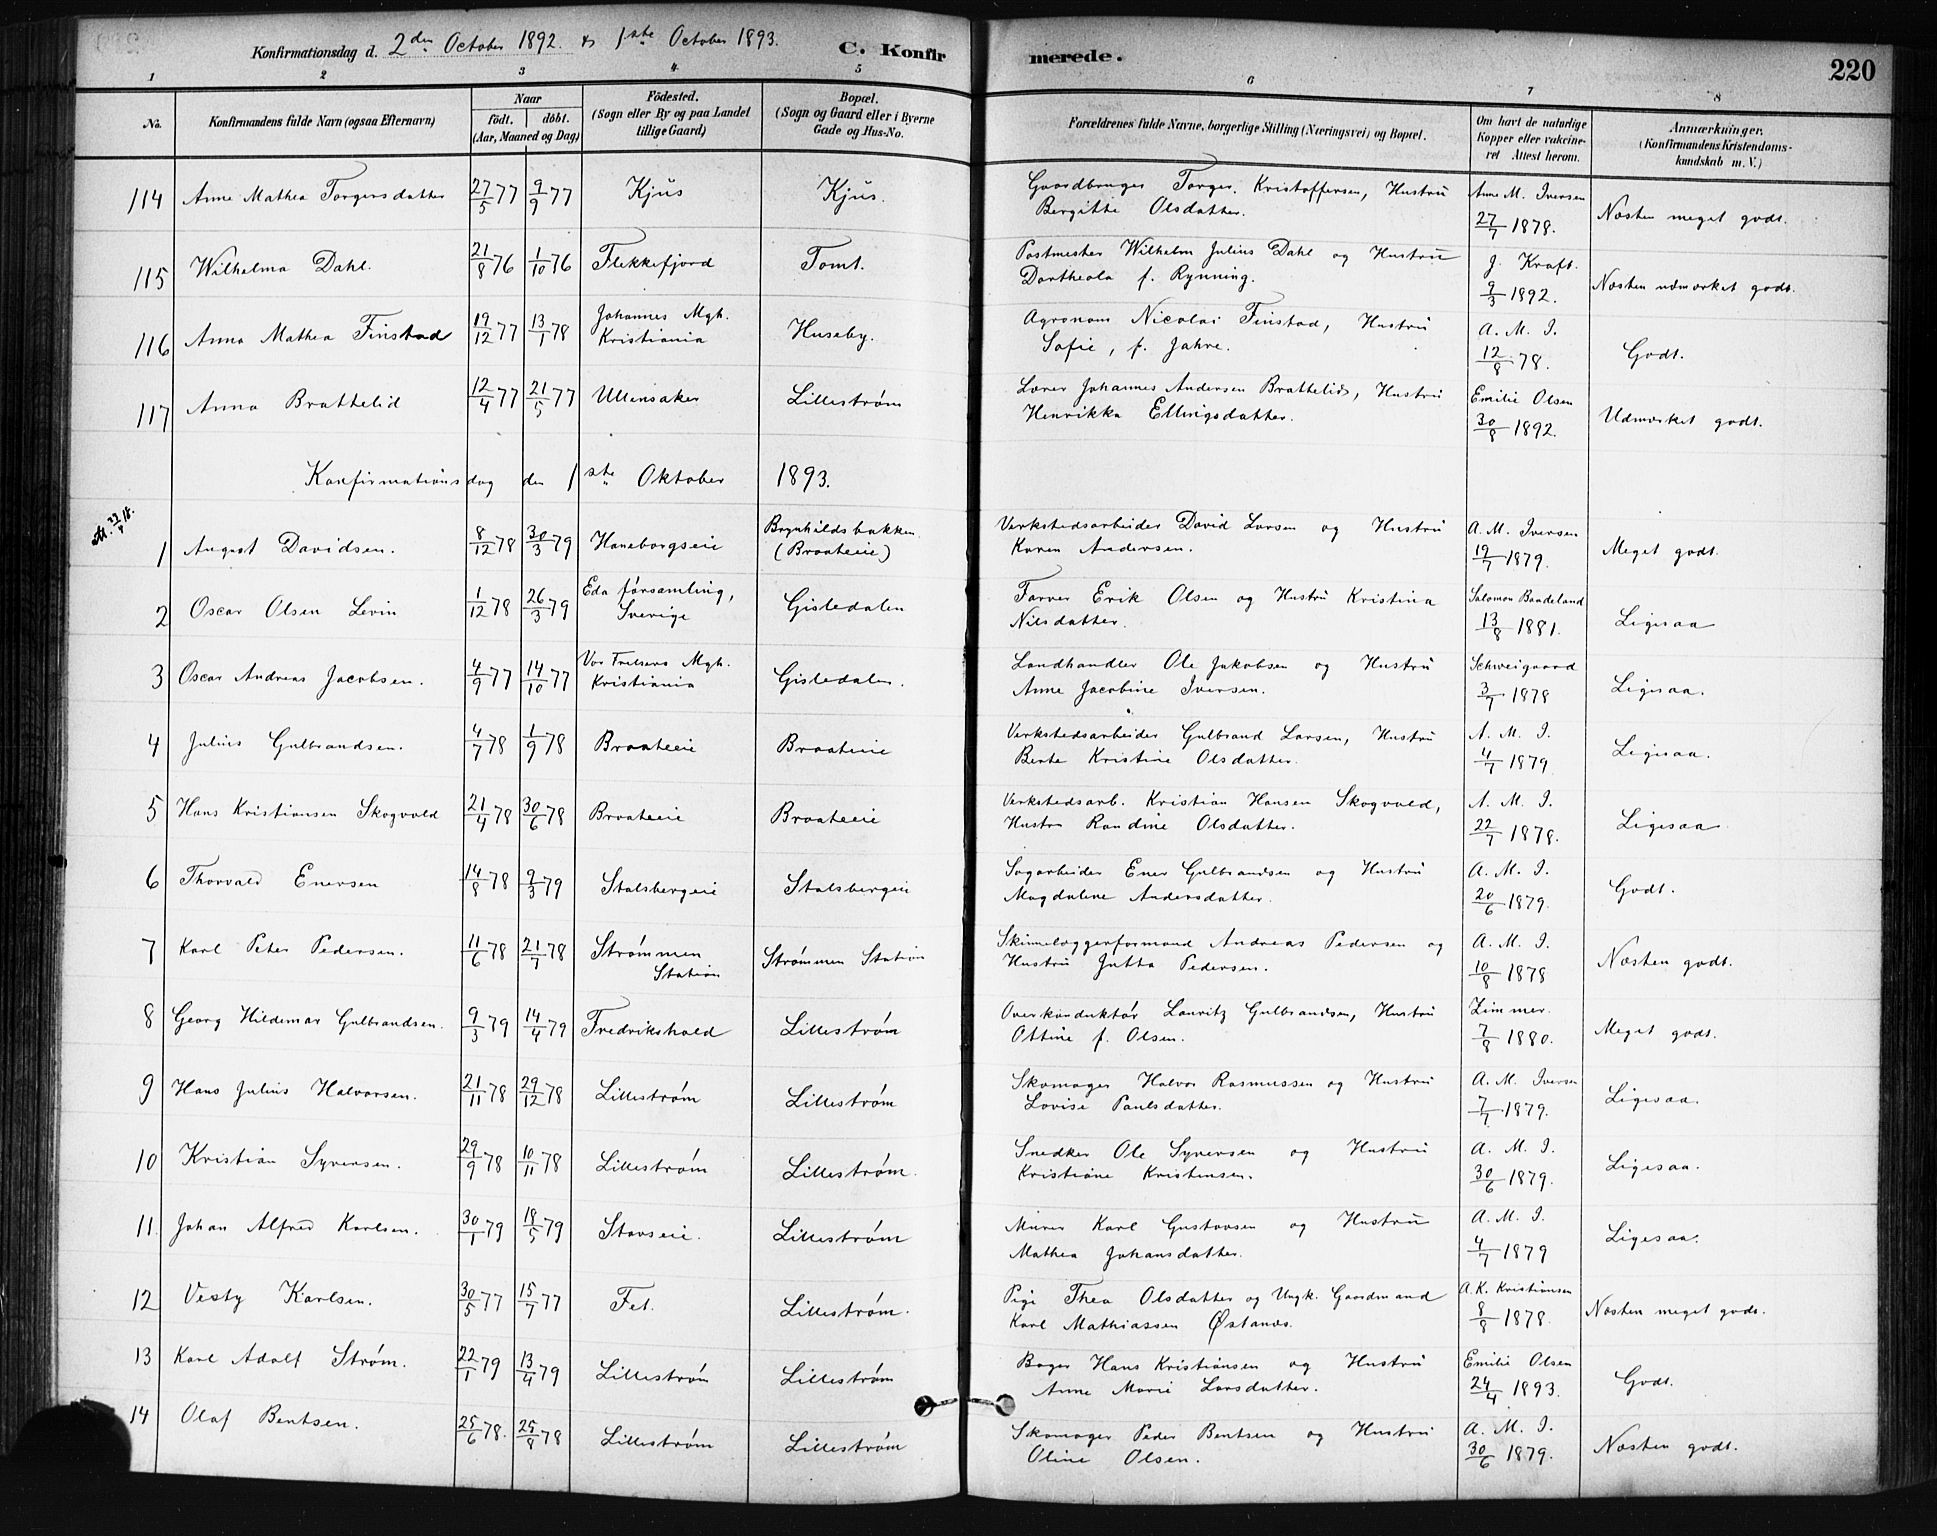 Konfirmationsdag d. 2den October 1892. & 1ste October 1893.
C. Konfirmerede.
220
1 2 3 4 5 6 7 8
No.
Konfirmandens fulde Navn (ogsaa Efternavn)
Naar
födt. döbt.
(Aar, Maaned og Dag)
Födested.
(Sogn eller By og paa Landet
tillige Gaard)
Bopæl.
(Sogn og Gaard eller i Byerne
Gade og Hus-No.
Forældrenes fulde Navne, borgerlige Stilling (Næringsvei) og Bopæl.
Om havt de naturlige
Kopper eller vakcine-
ret Attest herom.
Anmærkninger.
(Konfirmandens Kristendoms-
kundskab m. V.)
114 Anne Mathea Torgersdatter 27/5 77 9/9 77 Kjus Kjus. Gaardbruger Torger Kristoffersen, Hustru Anne M. Iversen
Bergitte Olsdatter. 27/7 1878. Næsten meget godt.
115 Wilhelma Dahl. 21/8 76 1/10 76 Flekkefjord Tomt. Postmester Wilhelm Julius Dahl og Hustru J. Kraft.
Dortheola f. Rynning. 9/3 1892. Næsten udmærket godt.
116 Anna Mathea Finstad 19/12 77 13/1 78 Johannes Mgh. Kristiania Huseby. Agronom Nicolai Finstad, Hustru A. M. I.
Sofie, f. Jahre. 12/8 78. Godt.
117 Anna Brattelid 12/4 77 21/5 77 Ullensaker Lillestrøm Lærer Johannes Andersen Brattelid, Hustru Emilie Olsen
Henrikka Ellingsdatter. 30/8 1892. Udmærket godt.
Konfirmationsdag den 1ste Oktober 1893.
1 August Davidsen. 8/12 78 30/3 79 Haneborgseie Brynhildsbakken. (Braateeie) Værkstedsarbeider David Larsen og Hustru A. M. Iversen
Karen Andersen. 19/7 1879. Meget godt.
2 Oscar Olsen Levin 1/12 78 26/3 79 Eda församling, Sverige Gistedalen Farver Erik Olsen og Hustru Kristina Salomon Baadeland
Nilsdatter. 13/8 1881. Ligesaa
3 Oscar Andreas Jacobsen. 4/9 77 14/10 77 Vor Frelsers Mgh. Kristiania Gistedalen. Landhandler Ole Jakobsen og Hustru Schweigaard
Anne Jacobine Iversen. 3/7 1878 Ligesaa.
4 Julius Gulbrandsen. 4/7 78 1/9 78 Braateeie Braateeie Værkstedsarbeider Gulbrand Larsen, Hustru A. M. I.
Berte Kristine Olsdatter. 4/7 1879 Ligesaa.
5 Hans Kristiansen Skogvold 21/4 78 30/6 78 Braateeie Braateeie Værkstedsarb. Kristian Hansen Skogvold, A. M. I.
Hustru Randine Olsdatter. 22/7 1878. Ligesaa
6 Thorvald Enersen 14/8 78 9/3 79 Stalsbergeie Stalsbergeie Sagarbeider Ener Gulbrandsen og Hustru A. M. I.
Magdalene Andersdatter. 20/6 1879. Godt.
7 Karl Peter Pedersen. 11/6 78 21/7 78 Strømmen Station Strømmen Station Skinnelæggerformand Andreas Pedersen og A. M. I.
Hustru Jutta Pedersen. 10/8 1878 Næsten godt.
8 Georg Hildemar Gulbrandsen. 9/3 79 14/4 79 Fredrikshald Lillestrøm Overkonduktør Lauritz Gulbrandsen, Hustru Zimmer.
Ottine f. Olsen. 7/8 1880. Meget godt.
9 Hans Julius Halvorsen. 21/11 78 29/12 78 Lillestrøm Lillestrøm Skomager Halvor Rasmussen og Hustru A. M. Iversen
Lovise Paulsdatter. 7/7 1879. Ligesaa.
10 Kristian Syversen. 29/9 78 10/11 78 Lillestrøm Lillestrøm. Snedker Ole Syversen og Hustru A. M. I.
Kristiane Kristensen. 30/6 1879. Ligesaa.
11 Johan Alfred Karlsen. 30/1 79 18/5 79 Stavseie. Lillestrøm Murer Karl Gustavsen og Hustru A. M. I.
Mathea Johansdatter. 4/7 1879 Ligesaa.
12 Vesty Karlsen. 30/5 77 15/7 77 Fet. Lillestrøm. Pige Thea Olsdatter og Ungk. Gaardmand A. K. Kristiansen
Karl Mathiassen Østanes. 8/8 1878. Næsten meget godt.
13 Karl Adolf Strøm. 22/1 79 13/4 79 Lillestrøm Lillestrøm Bager Hans Kristiansen og Hustru Emilie Olsen
Anne Marie Larsdatter. 24/4 1893. Godt.
14 Olaf Bentsen. 25/6 78. 25/8 78 Lillestrøm Lillestrøm Skomager Peder Bentsen og Hustru A. M. I.
Oline Olsen. 30/6 1879. Næsten godt.